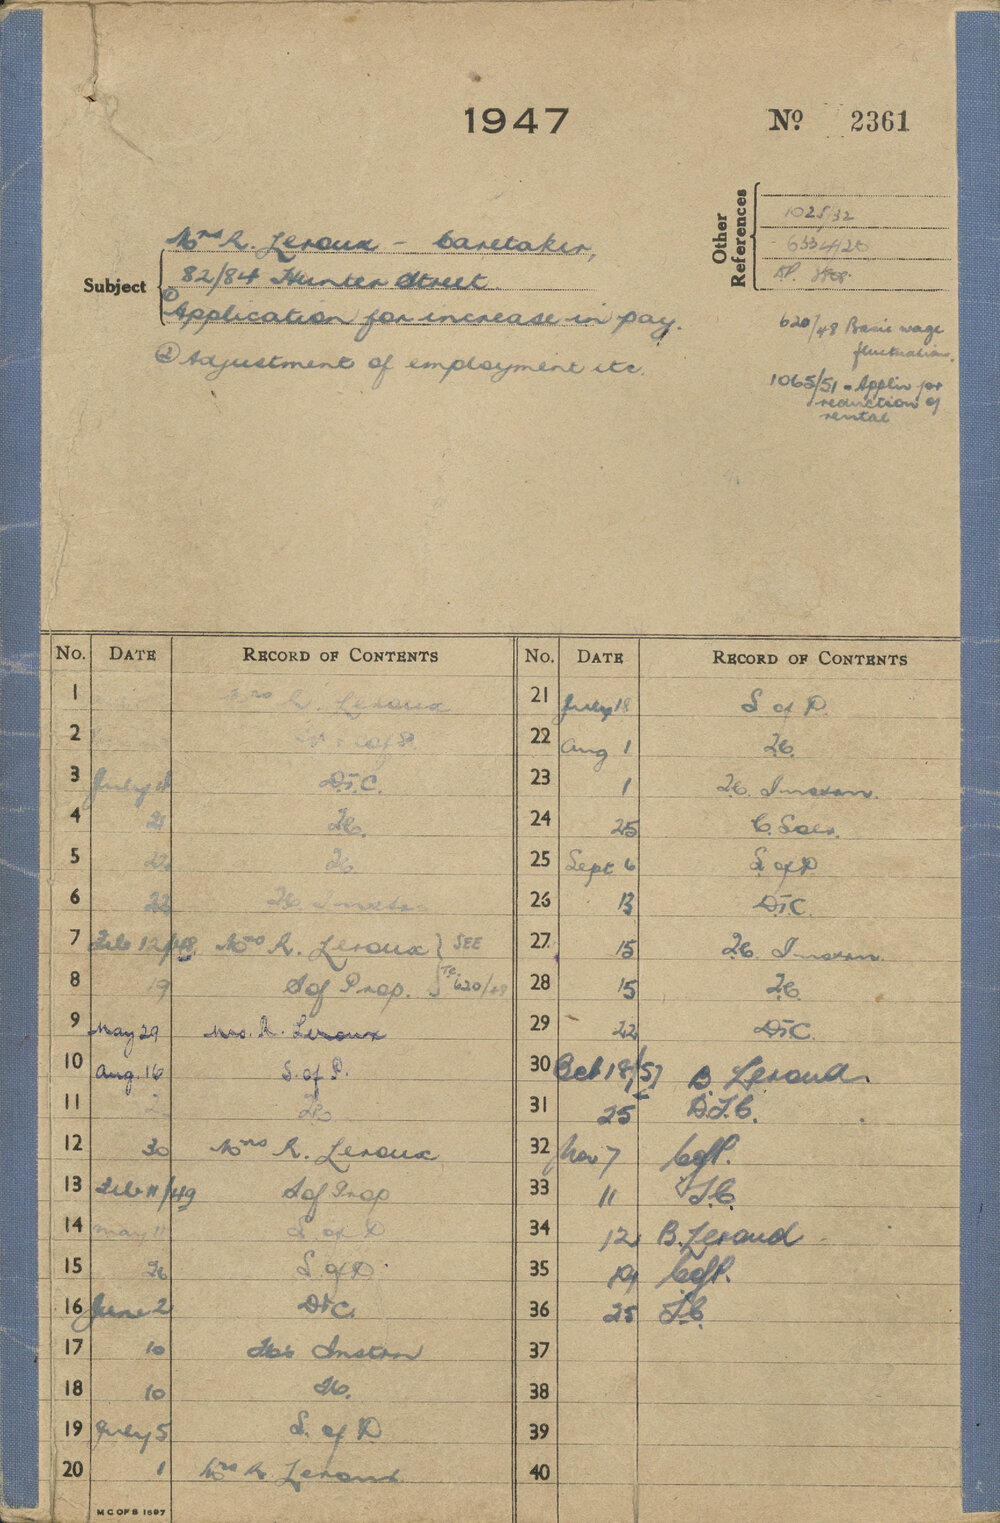 1947
No 2361
Other References
1025/32
6334/20
Subject
Mrs R. Leroux - Caretaker,
82/84 Hunter Street.
① Application for increase in pay.
② Adjustment of employment etc.
620/48 Basic wage
fluctuations.
1065/51 - Applin for
reduction of
rental
No. DATE RECORD OF CONTENTS
1 Mrs R. Leroux
2
3 July
4 21 T.C.
5 22 T.C.
6 22 T.C. Instrn
7 Feb 12/48 Mrs R. Leroux } SEE
8 19 S of Prop. } T.C. 620/48
9 May 29 Mrs. R. Leroux
10 Aug. 16 S. of P.
11 T.C.
12 30 Mrs R. Leroux
13 Feb 11/49 S of Prop
14 May 11 S of P
15 26 S. of P.
16 June 2 D.T.C.
17 10 Instrn
18 10 T.C.
19 July 5 S. of P
20 1 Mrs R Leroux
No. DATE RECORD OF CONTENTS
21 July 18 S of P.
22 Aug 1 T.C.
23 1 T.C. Instrn.
24 25 C. Solr.
25 Sept 6 S. of P
26 13 D.T.C.
27 15 T.C. Instrn.
28 15 T.C.
29 22 D.T.C.
30 Oct 18/51 B. Leroud.
31 25 D.T.C.
32 Nov 7 C of P.
33 11 T.C.
34 12 B. Leroud
35 19 C of P.
36 25 T.C.
37
38
39
40
M C OF S 1697